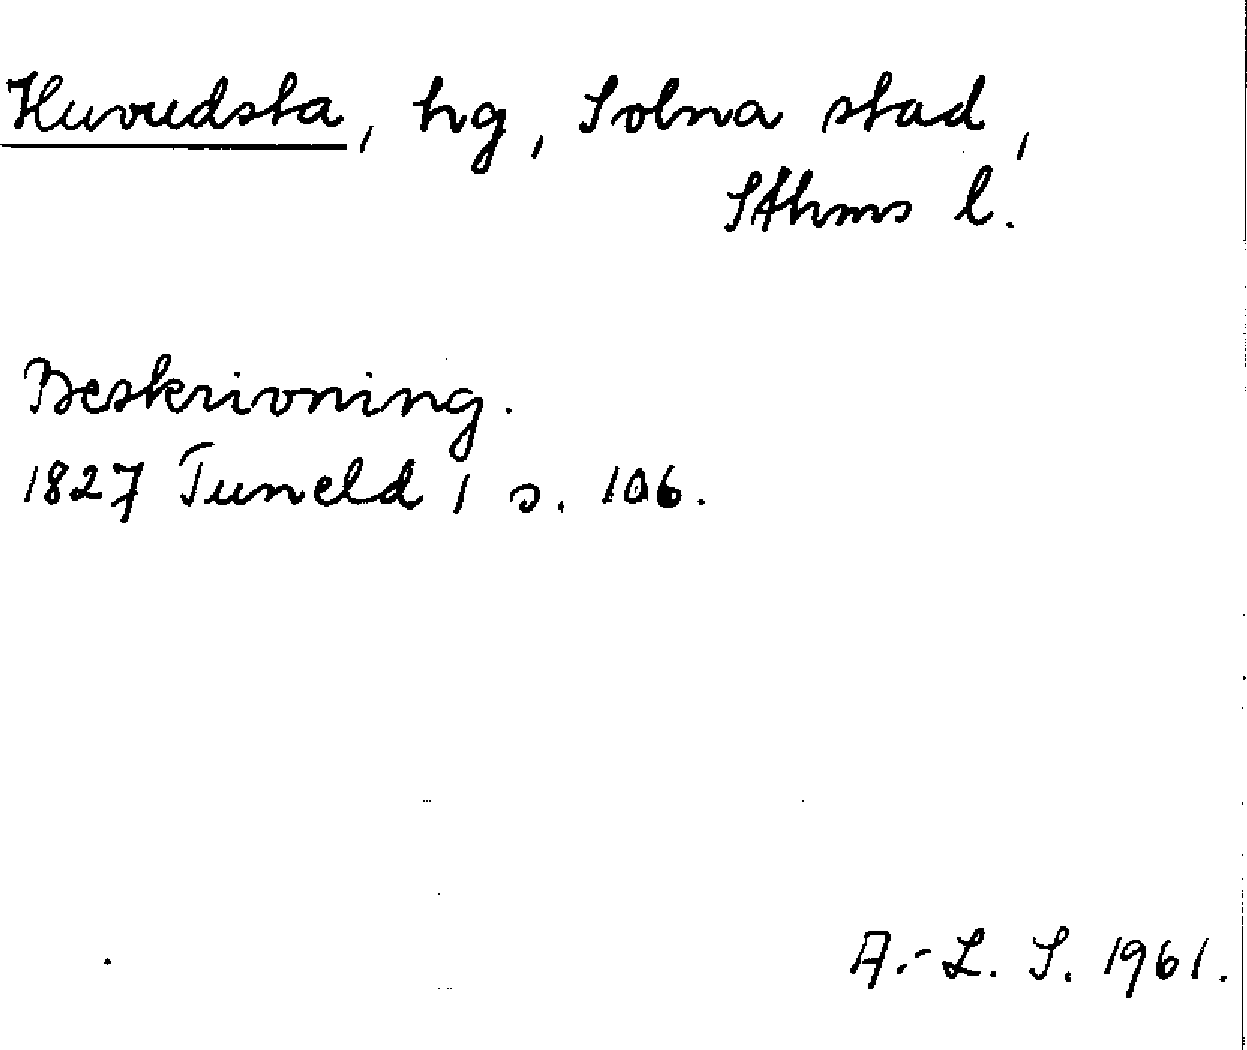 Huvudsta, hg, Solna stad,
Sthms l.
Beskrivning.
1827 Tuneld 1 s. 106.
A.-L. S. 1961.